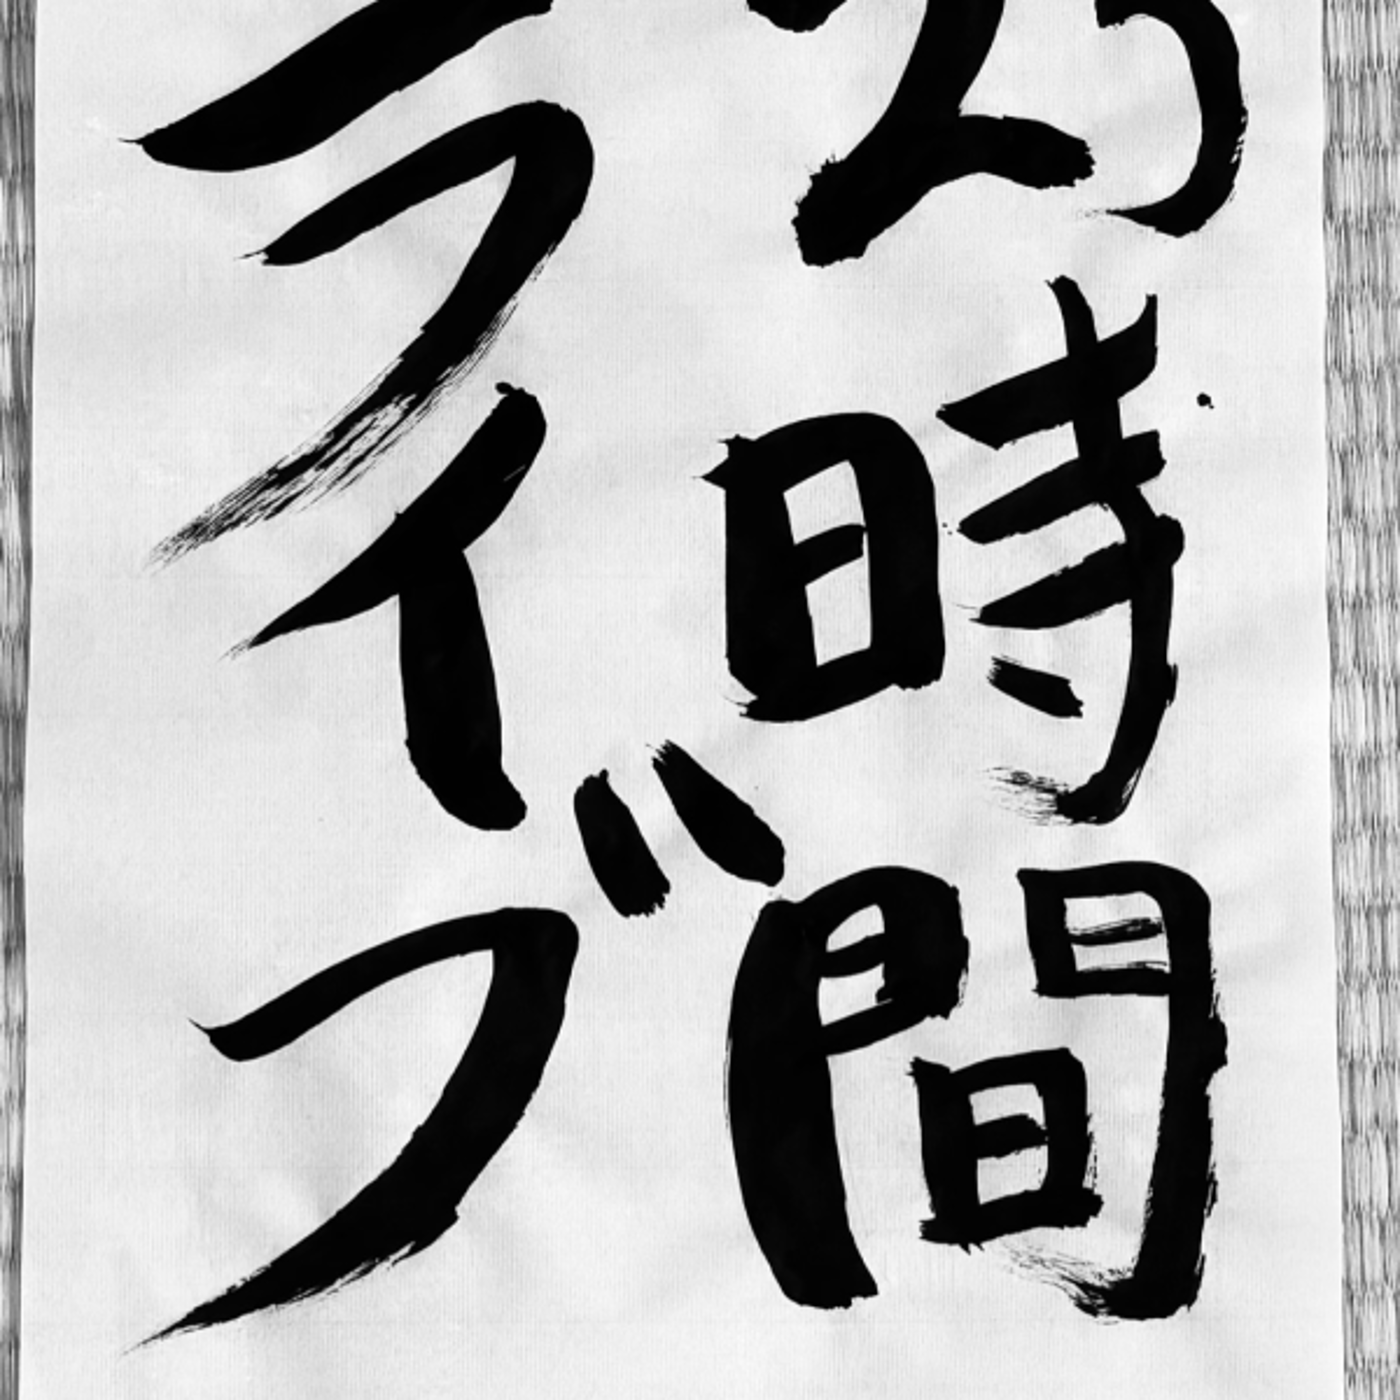 時間
ライブ